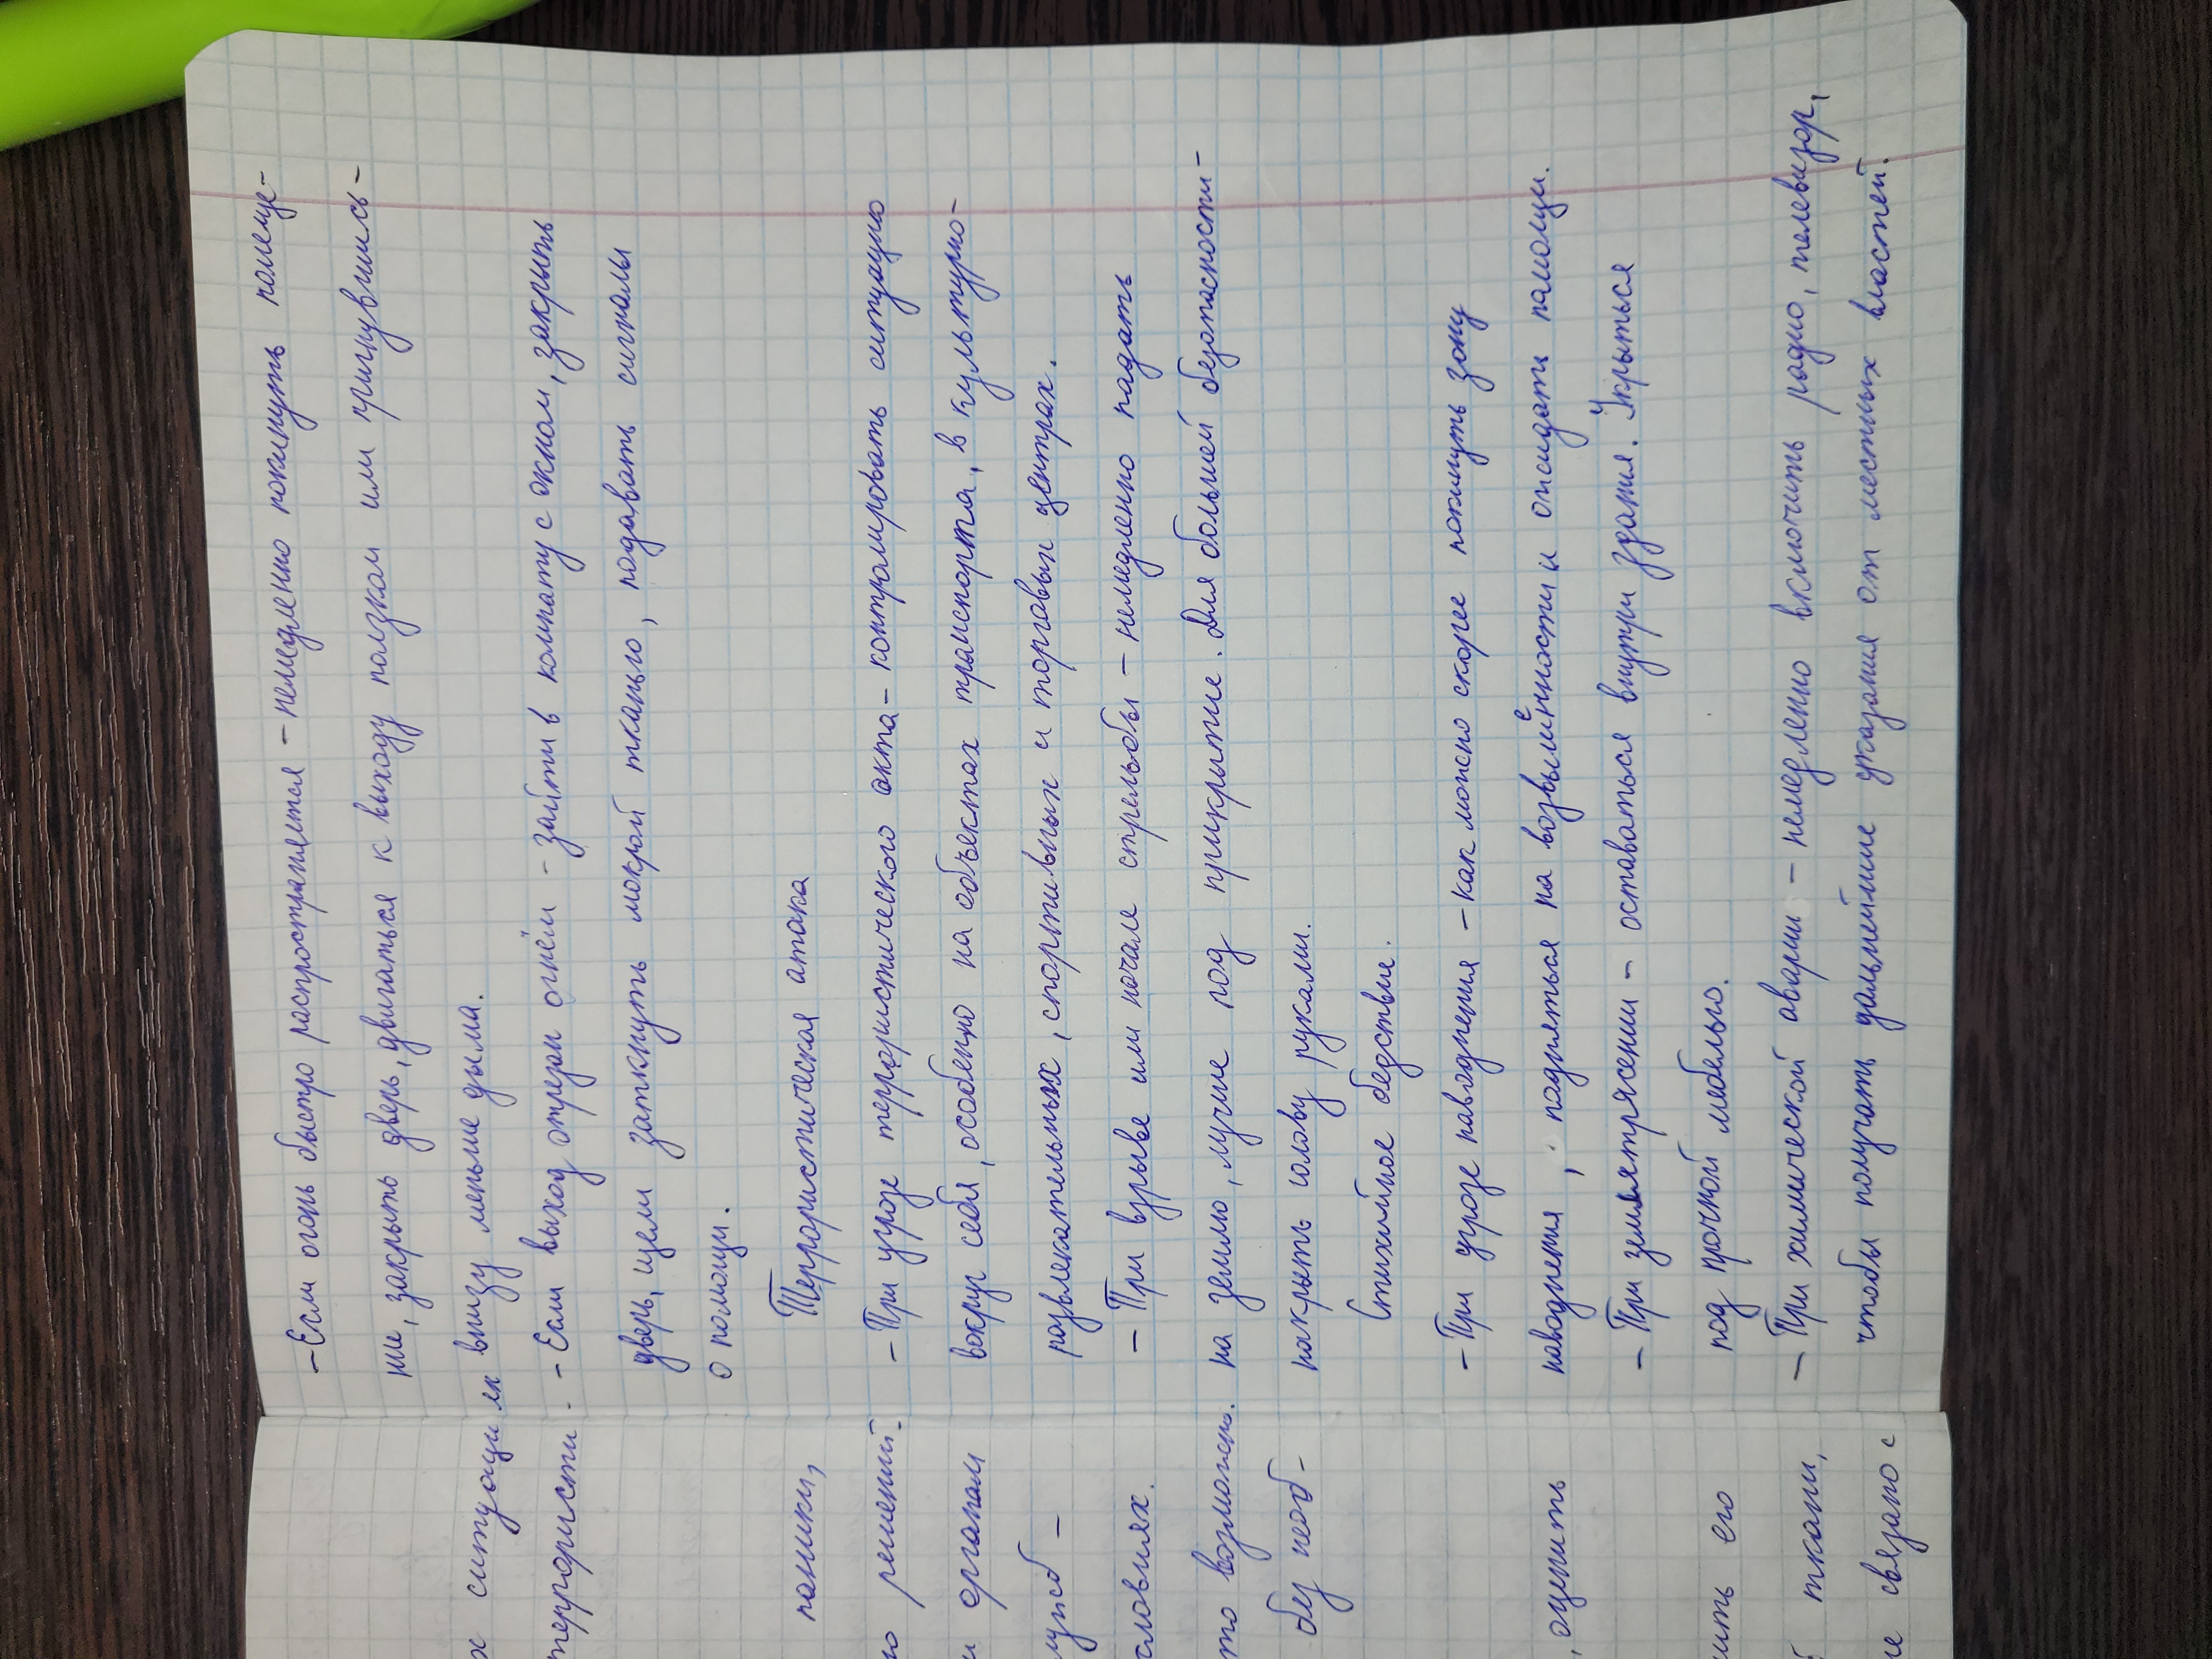 х ситуациях
террористи-
паники,
но решений.
и органам
служб –
словиях.
то возможно.
обу необ-
, оценить
ить его
й ткани,
ие связано с
– Если огонь быстро распространяется – немедленно покинуть помеще-
ние, закрыть дверь, двигаться к выходу ползком или пригнувшись –
внизу меньше дыма.
– Если выход отрезан огнём – зайти в комнату с окном, закрыть
дверь, щели заткнуть мокрой тканью, подавать сигналы
о помощи.
Террористическая атака
– При угрозе террористического акта – контролировать ситуацию
вокруг себя, особенно на объектах транспорта, в культурно-
развлекательных, спортивных и торговых центрах.
– При взрыве или начале стрельбы – немедленно падать
на землю, лучше под прикрытие. Для большей безопасности –
накрыть голову руками.
Стихийное бедствие.
– При угрозе наводнения – как можно скорее покинуть зону
наводнения, подняться на возвышенности и ожидать помощи.
– При землятрясении – оставаться внутри здания. Укрыться
под прочной мебелью.
– При химической аварии – немедленно включить радио, телевизор,
чтобы получать дальнейшие указания от местных властей.